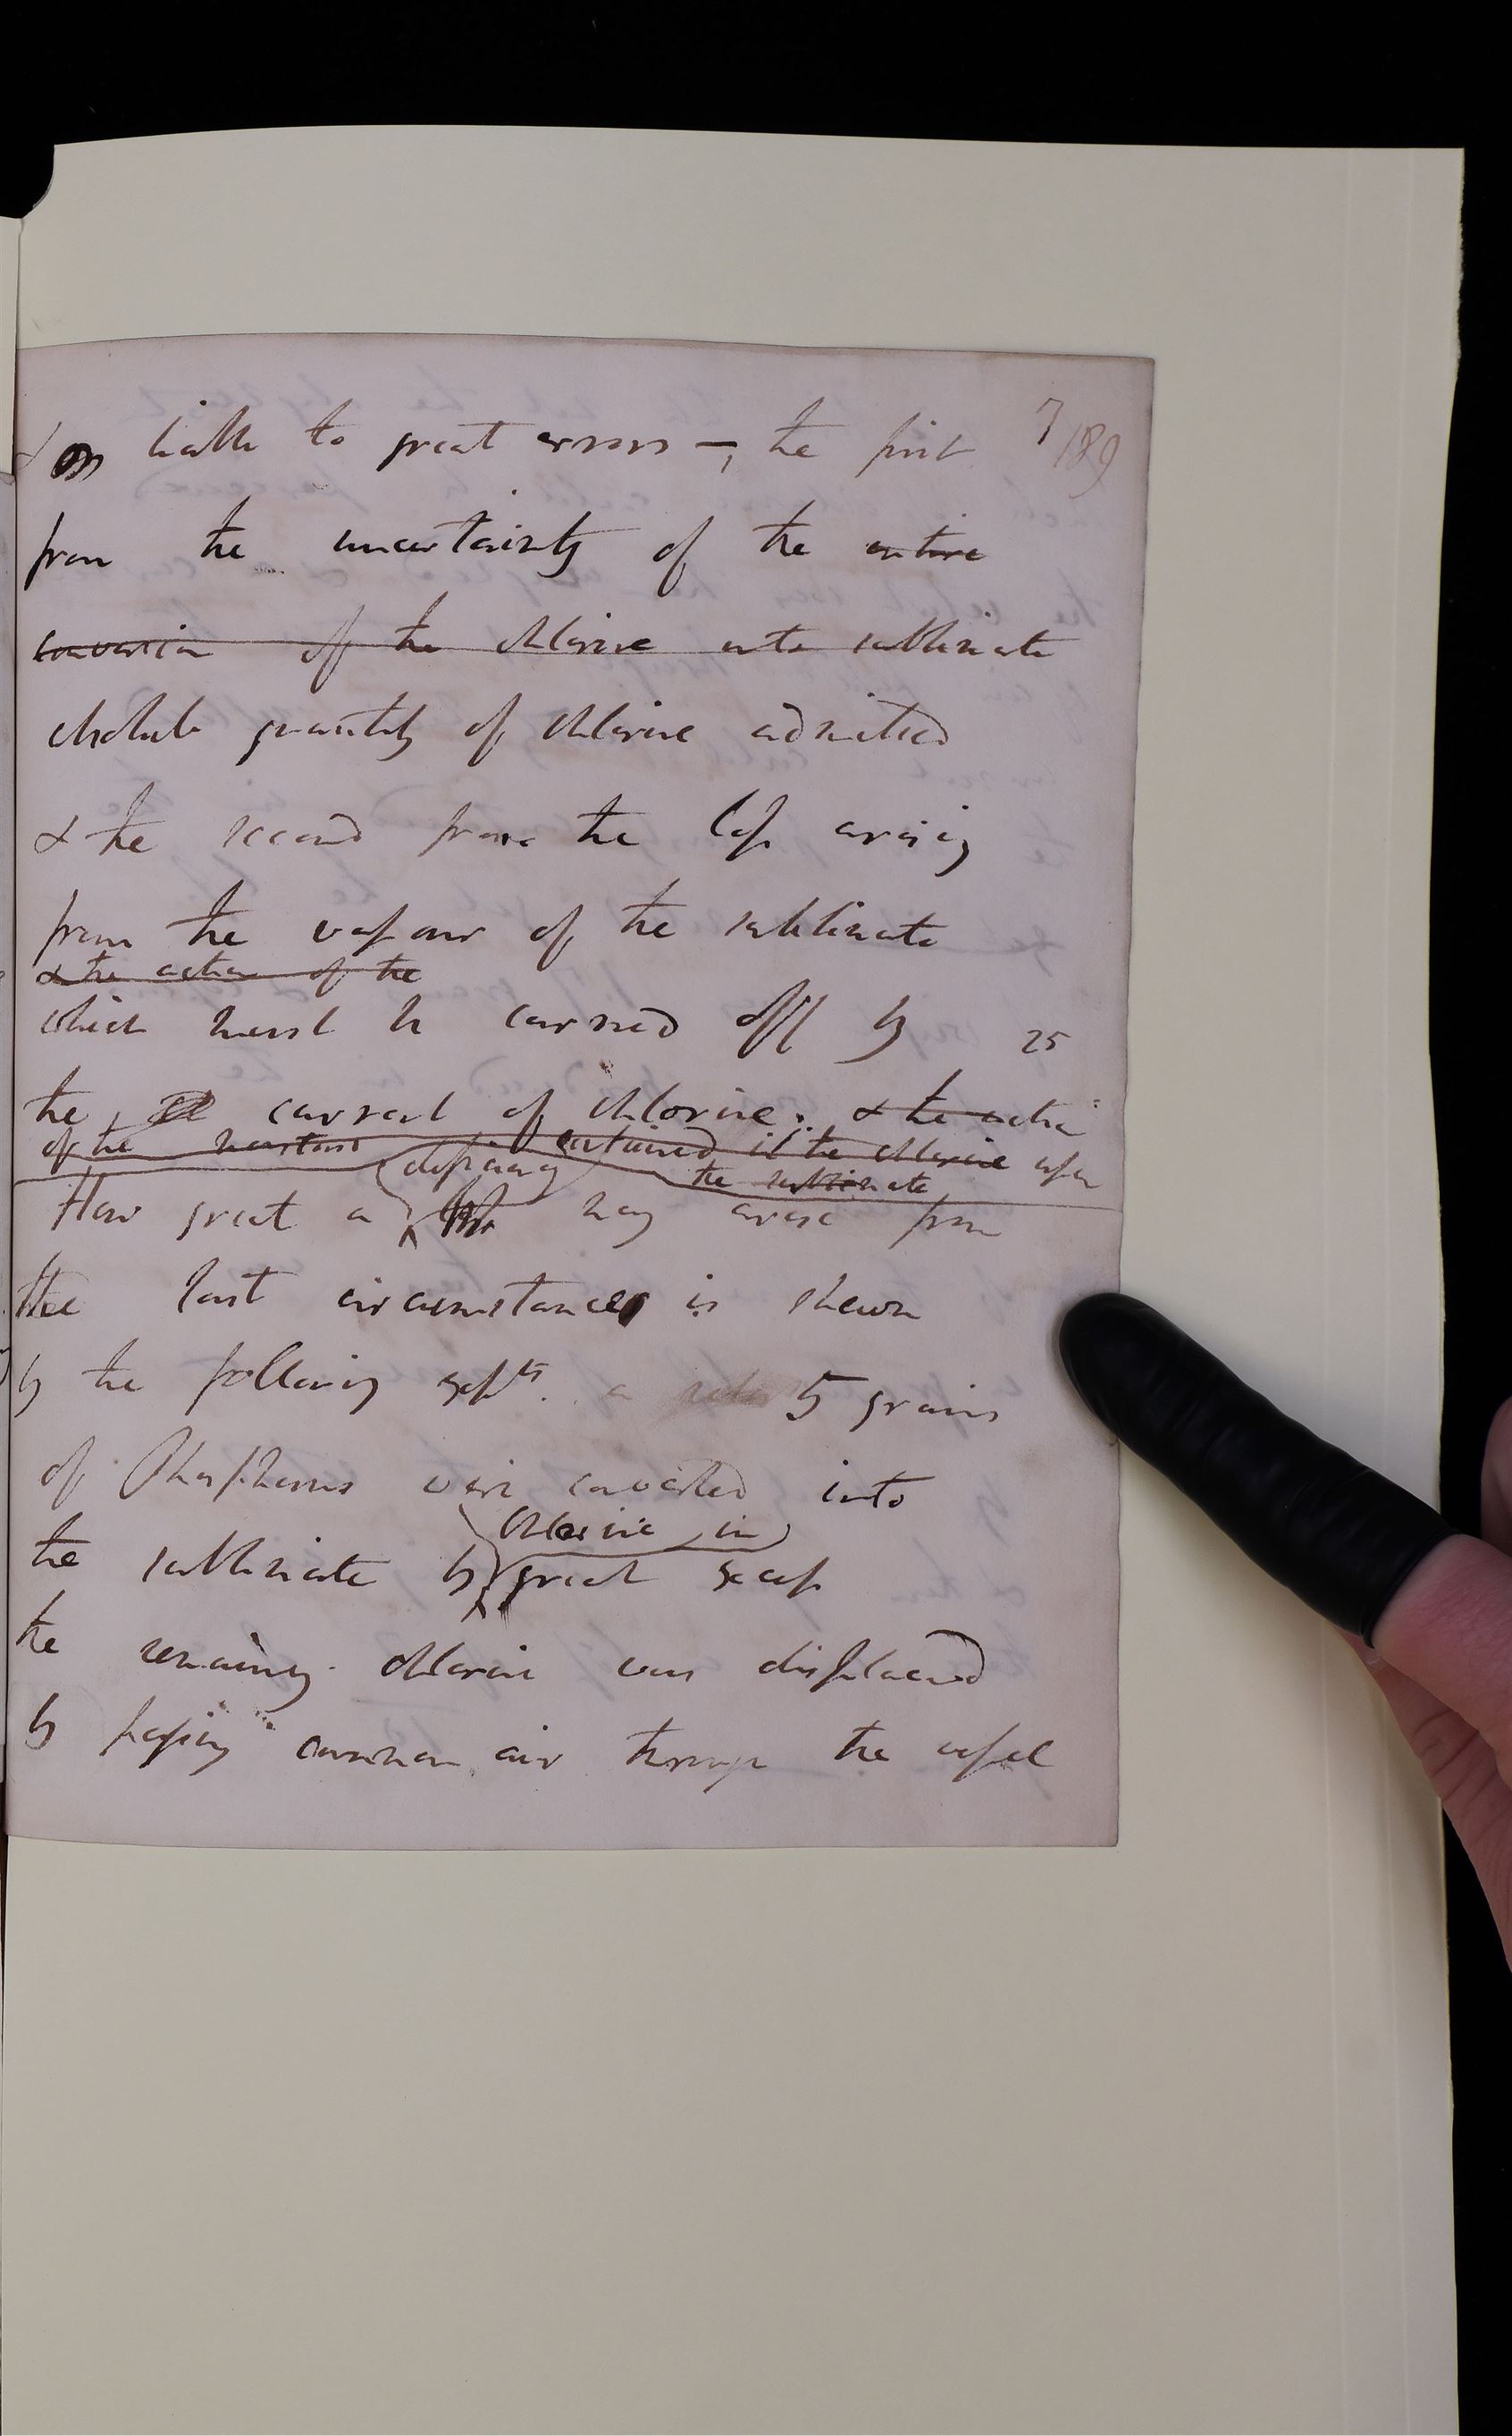 & liable to great errors –, the first 7
189
from the uncertainty of the entire
conversion of the chlorine into sublimate
absolute quantity of chlorine admitted
& the second from the loss arising
from the vapour of the sublimate
& the action of the
which must be carried off by 25
the current of chlorine. & the action
of the moisture contained in the chlorine upon
the sublimate
deficiency
How great a may arise from
the last circumstances is shewn
by the following expts. a 5 grains
of Phosphorus were converted into
chlorine in
the sublimate by great excess
the remaining chlorine was displaced
by passing common air through the vessel